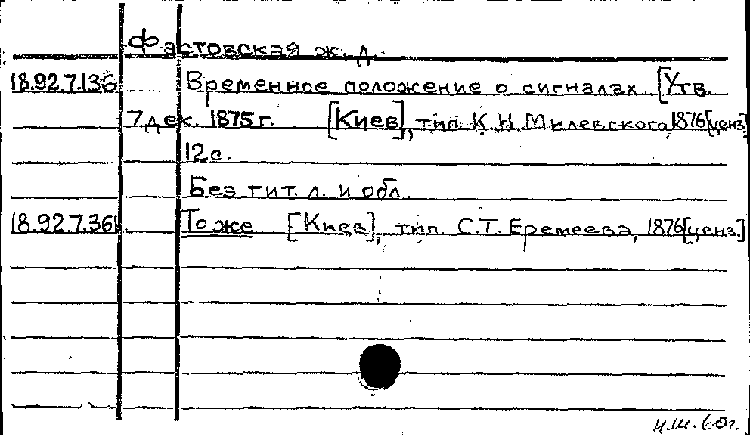 Фастовская ж. д.
18.92.7.136 Временное положение о сигналах. [Утв.
7 дек. 1875 г. [Киев], тип. К. Н. Милевского, 1876 [ценз.]
12 с.
Без тит. л. и обл.
18.92.7.361 То же [Киев], тип. С.Т. Еремеева, 1876 [ценз.]